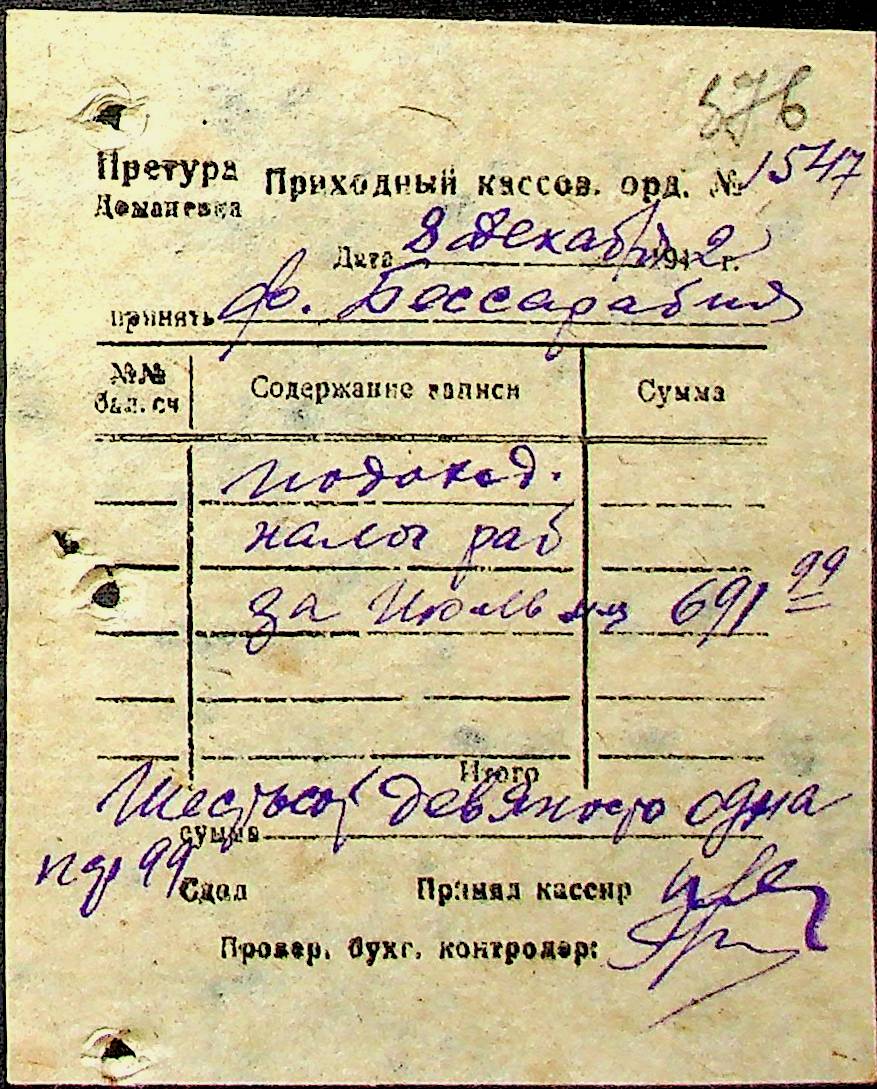 576
Претура Приходный кассов. орд. № 1547
Доманевка
Дата 8 декабря 1942 г.
принять ф. Бессарабия
№№ бал. сч Содержание записи Сумма
подоход.
налог раб
за Июль м-ц 691 99
Итого
Шестьсот девяносто одна
сумма
пф 99
Сдал Принял кассир
Провер. бухг. контролер: